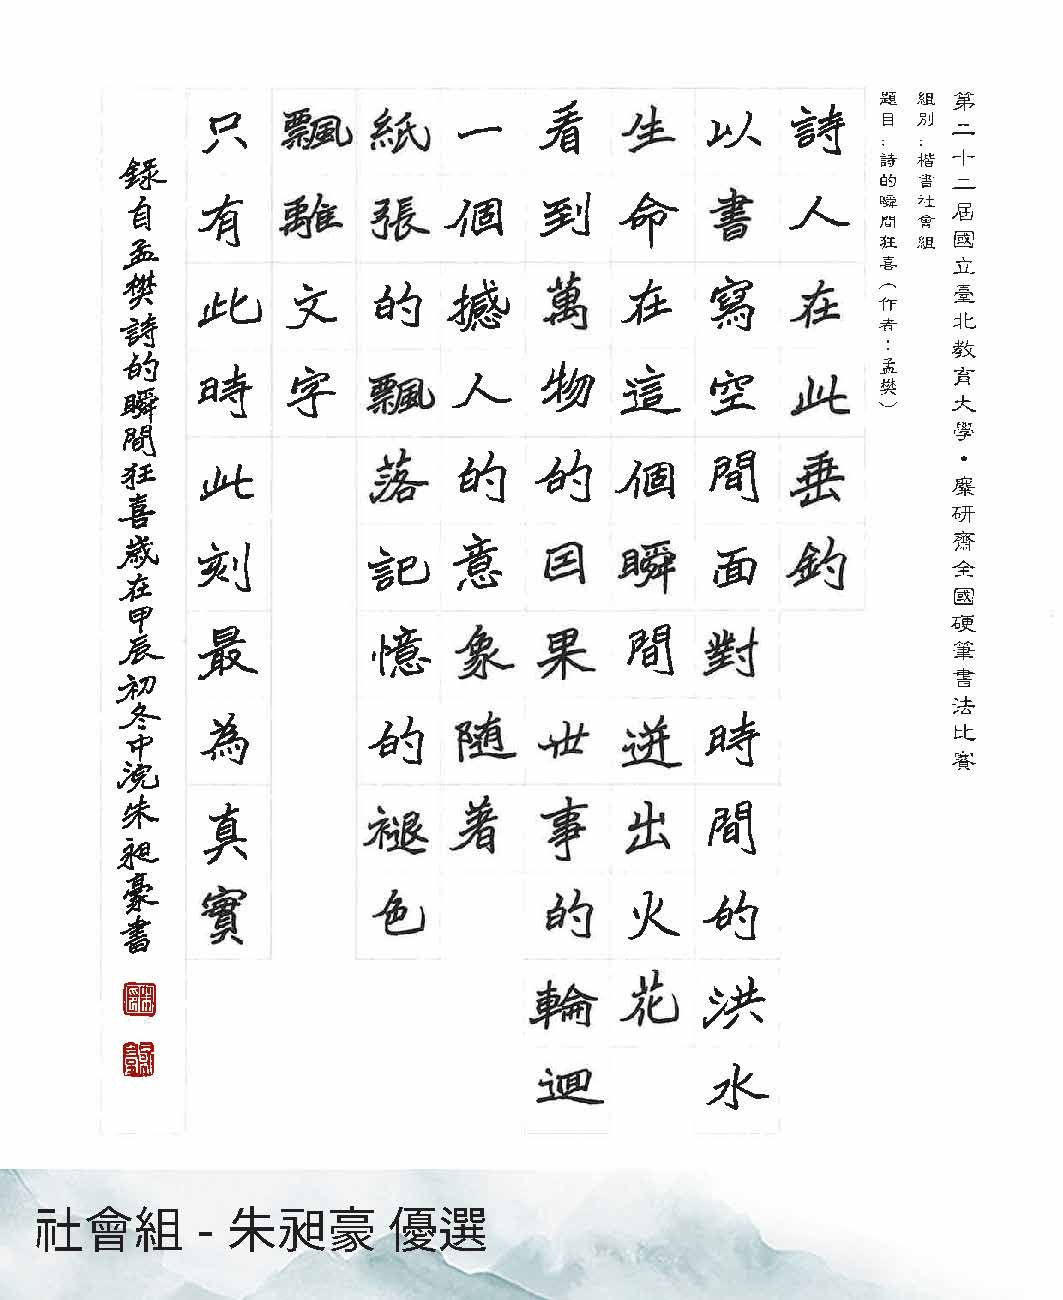 第二十二屆國立臺北教育大學・麋研齋全國硬筆書法比賽
組別：楷書社會組
題目：詩的瞬間狂喜（作者：孟樊）
詩人在此垂釣
以書寫空間面對時間的洪水
生命在這個瞬間迸出火花
看到萬物的因果世事的輪迴
一個撼人的意象隨著
紙張的飄落記憶的褪色
飄離文字
只有此時此刻最為真實
錄自孟樊詩的瞬間狂喜歲在甲辰初冬中浣朱昶豪書
社會組 - 朱昶豪 優選